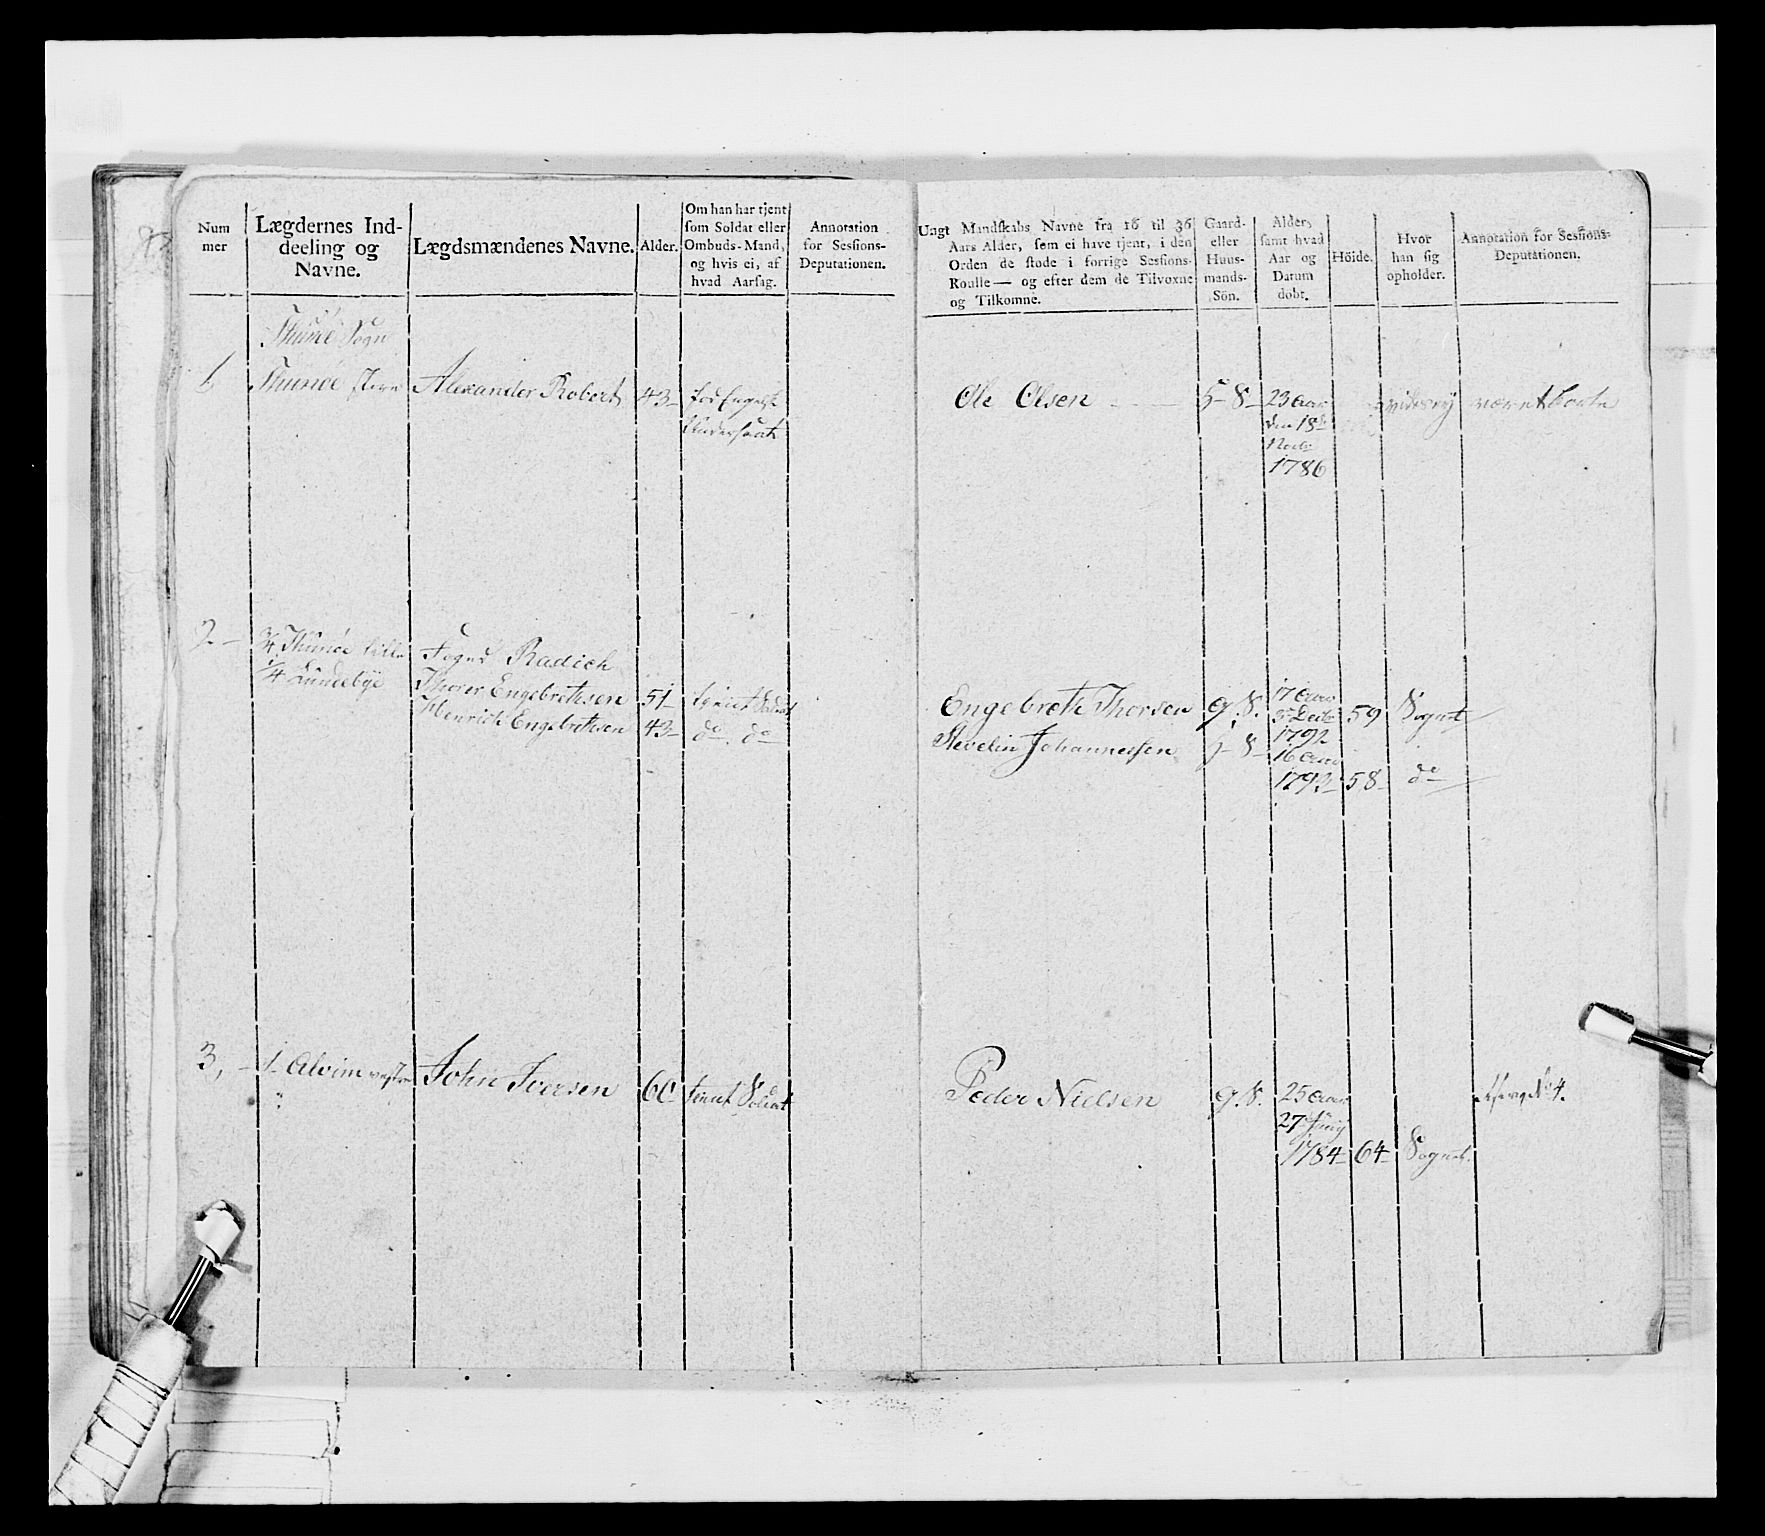 Num
mer
Lægdernes Ind-
deeling og
Navne.
Lægdsmændenes Navne.
Alder.
Om han har tjent
som Soldat eller
Ombuds-Mand,
og hvis ei, af
hvad Aarsag.
Annotation
for Sessions-
Deputationen.
Ungt Mandskabs Navne fra 16 til 36
Aars Alder, som ei have tjent, i den
Orden de stode i forrige Sessions-
Roulle — og efter dem de Tilvoxne
og Tilkomne.
Gaard-
eller
Huus-
mands-
Sön.
Alder,
samt hvad
Aar og
Datum
dobt.
Höide.
Hvor
han sig
opholder.
Annotation for Sessions-
Deputationen.
Thunøe Sogn
1 Thunøe store Alexander Robert 43 fød Engelsk
Undersaat
Ole Olsen 23 Aar
den 18de
1786
2 3/4 Thunøe lille Radich
1/4 Lundebye
Thorer Engebrethsen 51 tjent Soldat
Henrich Engebrethsen 43 do do
Engebreth Thorsen G. S. 17 Aar
5 Decbr 59 Sognet
1792
Johannessen 16 Aar
1793 58 do
3, 1 Alvim John Iversen 60 tient Soldat
Peder Nielsen G. S. 25 Aar No 4.
27 Juny
1784 64 Sognet.